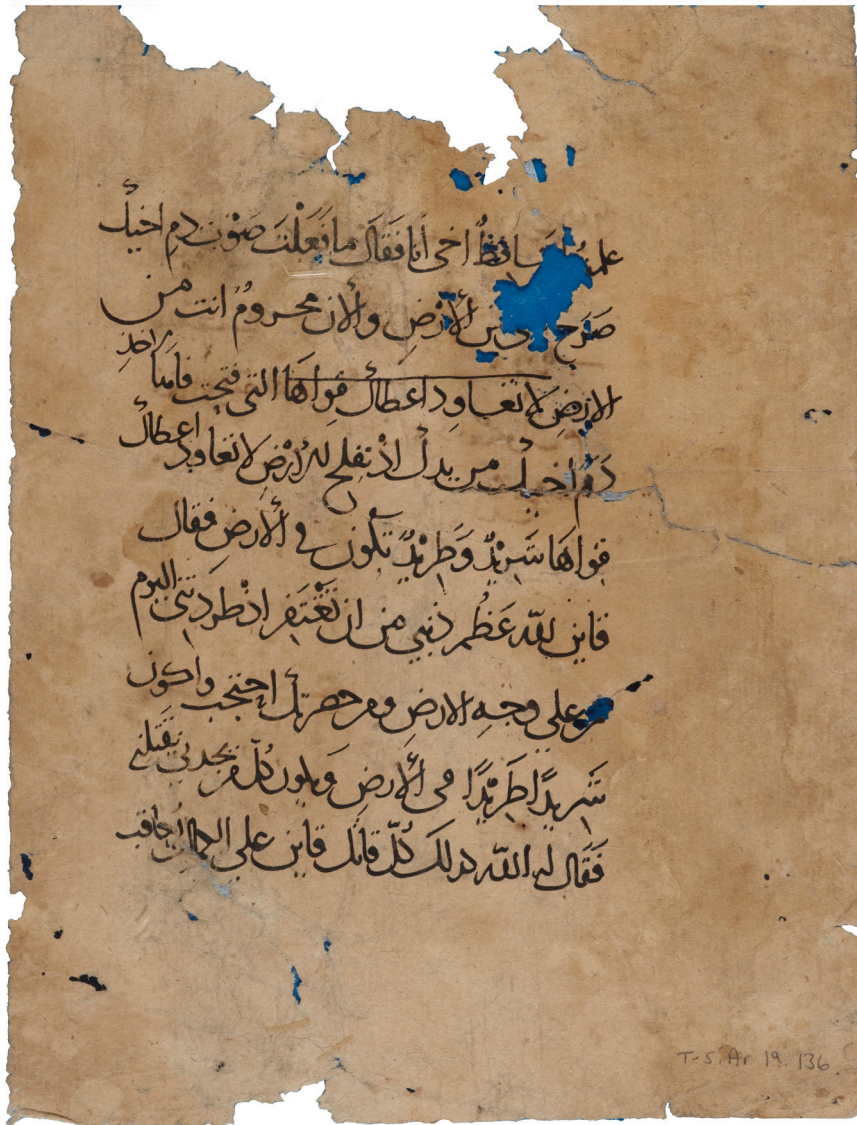 علمت احافظ اخي انا فقال ما فَعَلْتَ صَوْت دمِ اخيك
صَرَح من الأرْضِ والأن محرومٌ انت من
الارضِ لا تعاود اعطاك فواهَا التي فتحت فاها لاخذِ
دَم اخيك من يدك اذ تفلح للأرْضِ لا تعاود اعطاك
فواهَا شَرِيْدٌ وَطَرِيْدٌ تكون في الأرض فقال
قاين للّه عَظُم ذنبي من ان تَغْتَفِر اذ طَردتني اليوم
على وجْهِ الارضِ ومن حضرتك احتجب واكون
شَرِيْدًا طَرِيْدًا في الأرضِ وَيكون كُلّ من يجدني يَقتلني
فَقَال له اللّه لذلك كُلّ قاتل قاين على الكمال يُعاقب
T-S. Ar 19. 136